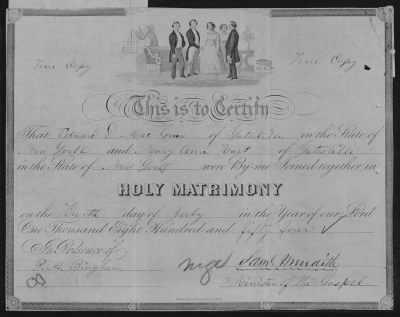 True Copy True Copy
This is to Certify
That Edward D. of in the State of
New York and Mary Ann Hart of
in the State of New York were By me Joined together in
HOLY MATRIMONY
on the day of July in the Year of our Lord
One Thousand Eight Hundred and fifty four
In Presence of
Bingham Saml Meredith
Minister of the Gospel
8